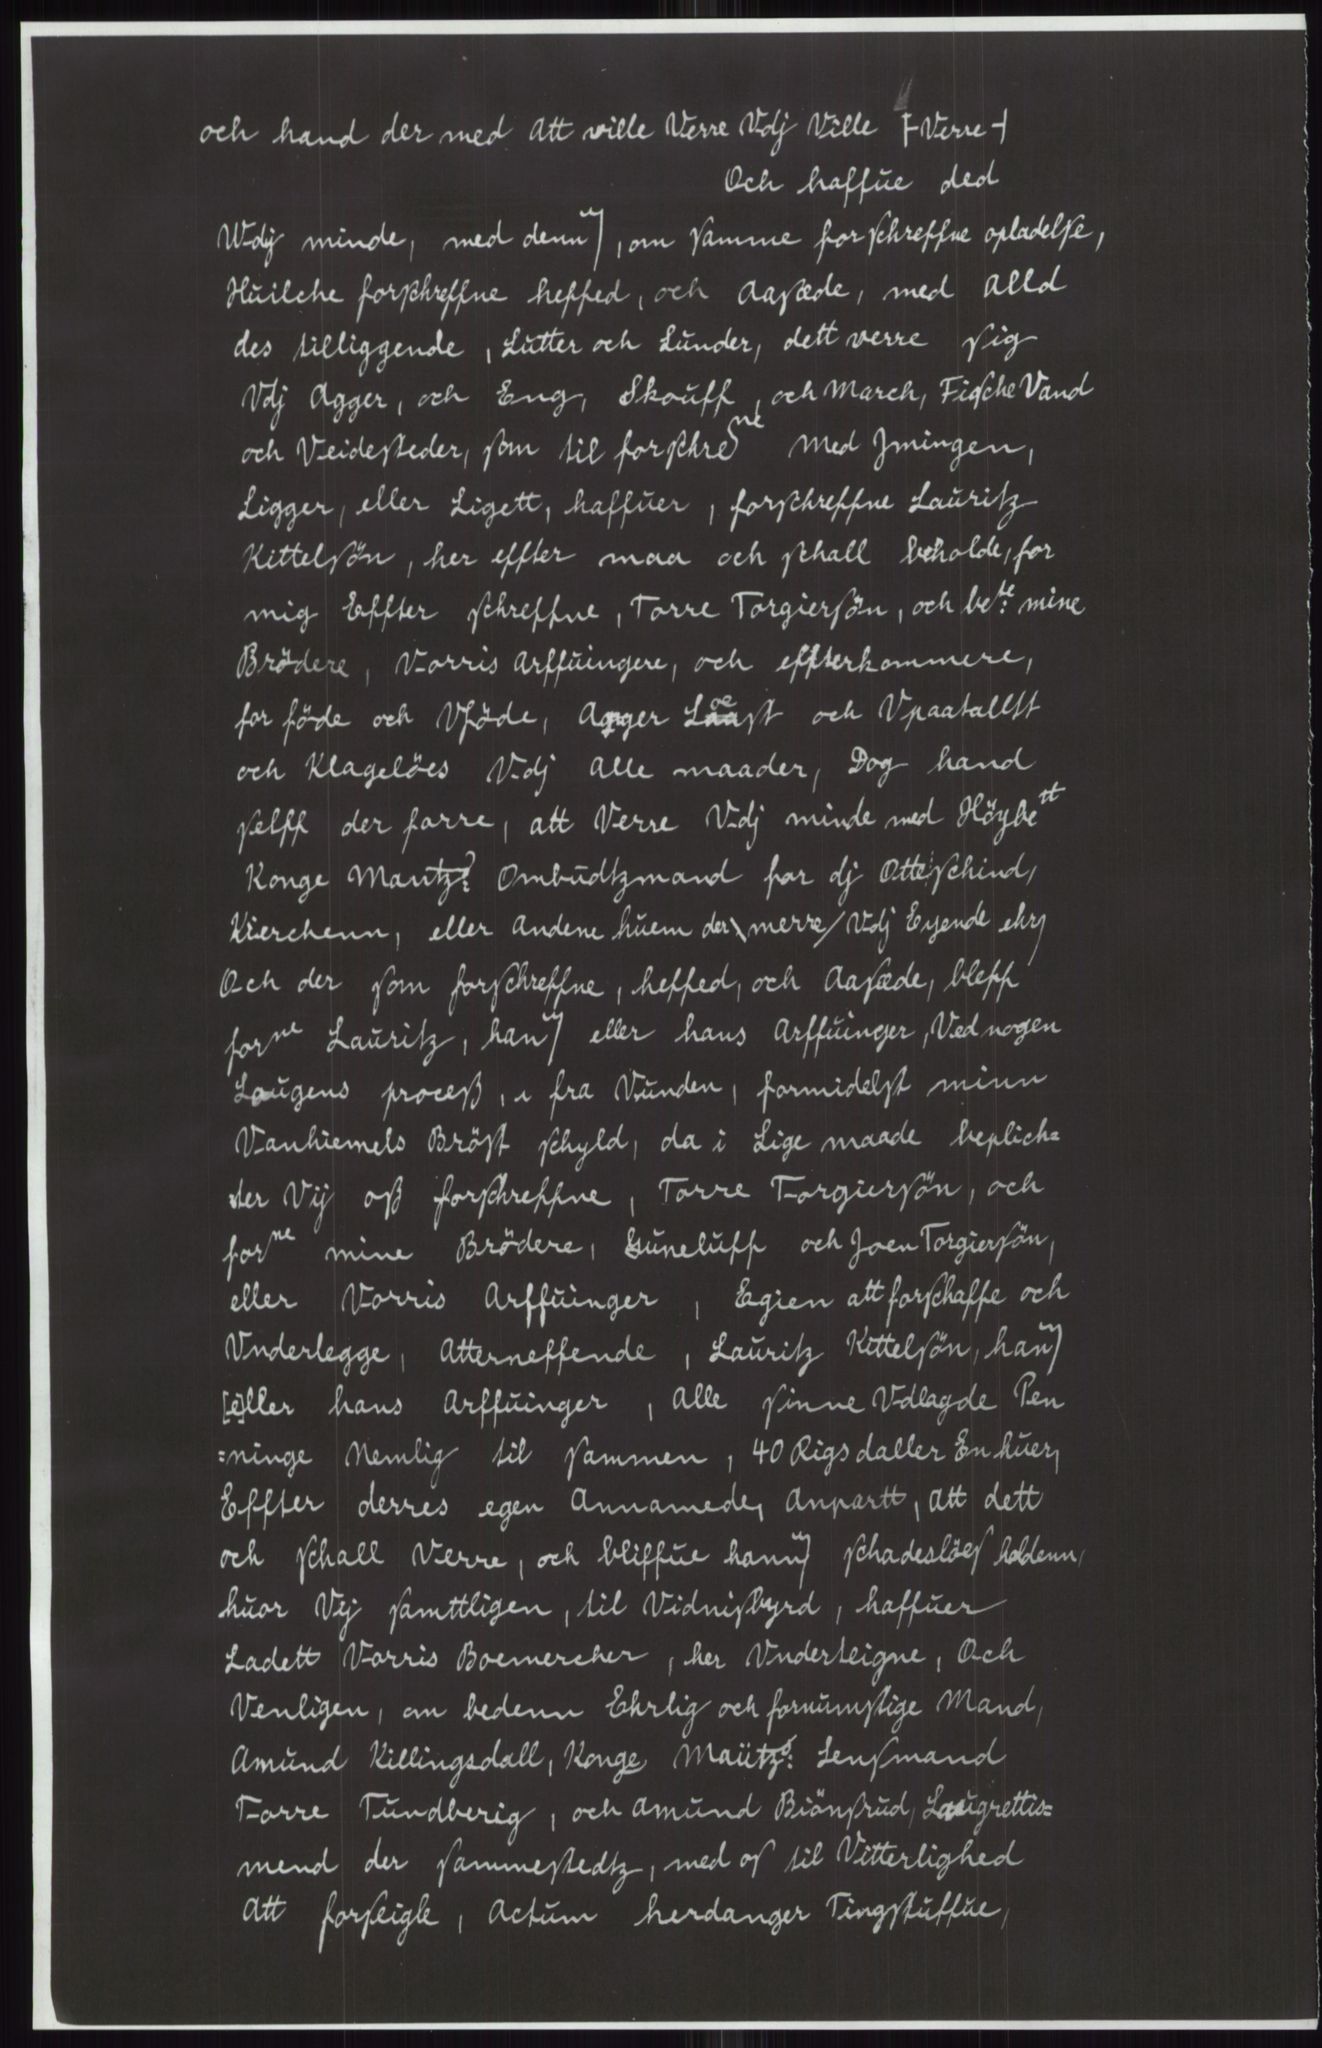 och hand der med att wille Verre Vdj Ville [-Verre-]
Och haffue ded
Wdij minde, med denn[em], om samme forschreffne opladelse,
Huilche forschreffne heffed, och Aasæde, med alld
des tilliggende, Lutter och Lunder, dett verre sig
Vdj Agger, och Eng, Skouff, och March, Fische Vand
och Veidesteder, som til forschrene med Jmingen,
Ligger, eller Ligett, haffuer, forschreffne Lauritz
Kittelsön, her effter maa och schall beholde, for
mig Effter schreffne, Torre Torgiersön, och bete: mine
Brödere, Vorris Arffuingere, och effterkommere,
for föde och Vföde, Agger Loest och Vpaatallt
och Klagelöes Vdj alle maader, Dog hand
selff der forre, att Verre Vdj minde med Höybett
Konge Mantz: Ombudtzmand for dj Otteschind,
Kierchenn, eller Andene huem der \merre/ Vdj Eyende ehr,
Och der som forschreffne, heffed, och Aasæde, bleff
forne Lauritz, han[em] eller hans Arffuinger, Ved nogen
Laugens proceß, i fra Vunden, formidelst minn
Vanhiemels Bröst schyld, da i Lige maade beplich=
ter Vij oß forschreffne, Torre Torgiersön, och
forne mine Brödere, Guneluff och Joen Torgiersön,
eller Vorris Arffuinger, Egien att forschaffe och
Vnderlegge, Atterneffende, Lauritz Kittelsön, han[em]
[e]ller hans Arffuinger, Alle sinne Vdlagde Pen
=ninge Nemlig til sammen, 40 Rigsdaller En huer,
Effter derres egen Annamede, Anpartt, att dett
och schall Verre, och bliffue hann[em] schadeslöes holdenn,
huor Vij samttligen, til Vidnisbyrd, haffuer
Ladett Vorris Boemercher, her Vnderteigne, Och
Venligen, om bedenn Ehrlig och fornumstige Mand,
Amund Killingsdall, Konge Maütz: Lensmand
Torre Tundberig, och Amund Biönsrud, Laugrettis=
mend der sammestedtz, med os til Vitterlighed
Att forseigle, Actum herdanger Tingstuffue,